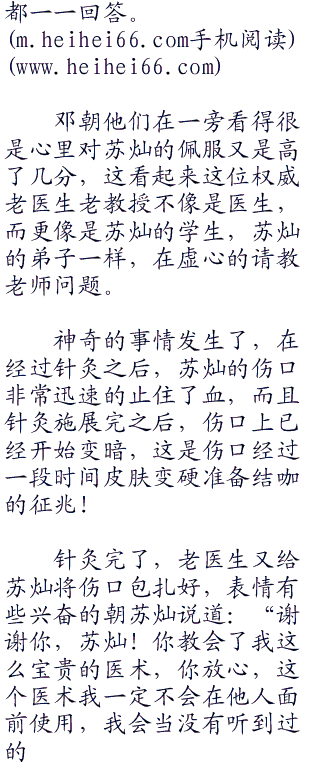 都一一回答。
(m.heihei66.com手机阅读)
(www.heihei66.com)
邓朝他们在一旁看得很
是心里对苏灿的佩服又是高
了几分，这看起来这位权威
老医生老教授不像是医生，
而更像是苏灿的学生，苏灿
的弟子一样，在虚心的请教
老师问题。
神奇的事情发生了，在
经过针灸之后，苏灿的伤口
非常迅速的止住了血，而且
针灸施展完之后，伤口上已
经开始变暗，这是伤口经过
一段时间皮肤变硬准备结咖
的征兆！
针灸完了，老医生又给
苏灿将伤口包扎好，表情有
些兴奋的朝苏灿说道：“谢
谢你，苏灿！你教会了我这
么宝贵的医术，你放心，这
个医术我一定不会在他人面
前使用，我会当没有听到过
的